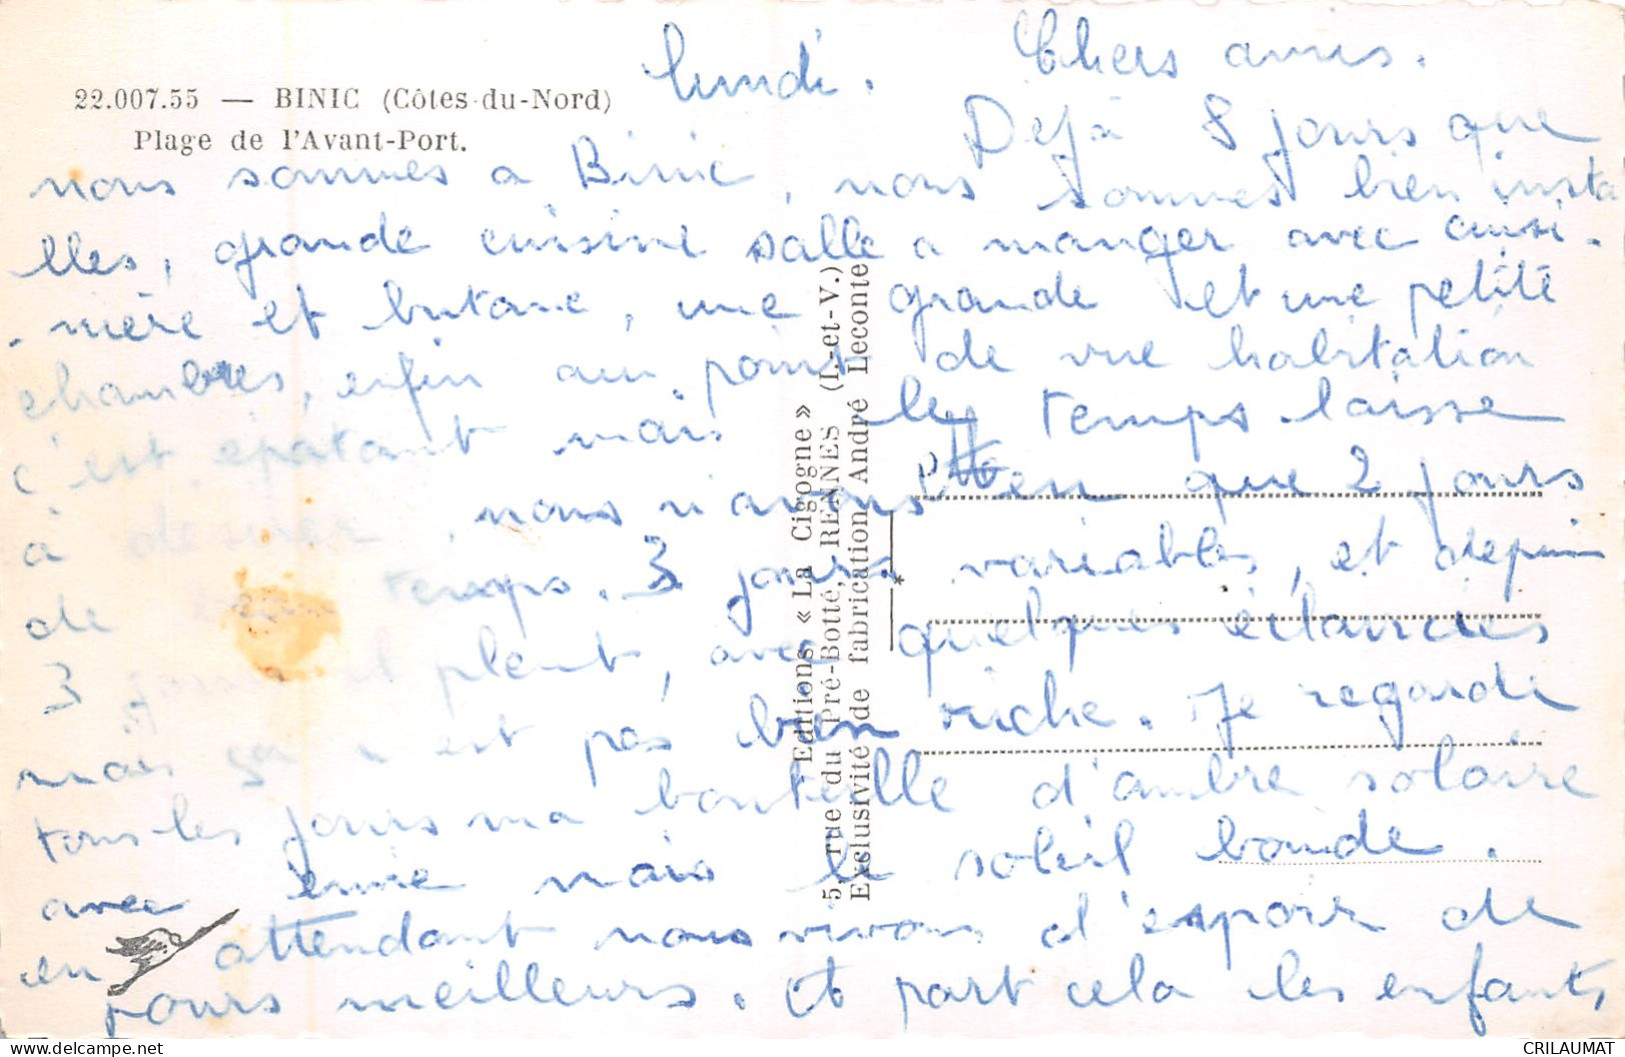 22.007.55 — BINIC (Côtes-du-Nord)
Plage de l'Avant-Port.
lundi. Chers amis.
Dejà 8 jours que
nous sommes a Binic, nous sommes bien insta
lles, grande cuisine salle a manger avec cuisi-
-nière et butane, une grande et une petite
chambres, enfin au point de vue habitation
c'est épatant mais le temps laisse
à desirer, nous n'avons en que 2 jours
de beau temps. 3 jours variables, et depuis
3 jours il pleut, avec quelques éclaircies
mais ça n'est pas bien riche. Je regarde
tous les jours ma bouteille d'ambre solaire
avec envie mais le soleil boude.
en attendant nous vivons d'espoir de
jours meilleurs. Et part cela les enfants
Editions « La Cigogne »
5, rue du Pré-Botté, RENNES (I.-et-V.)
Exclusivité de fabrication André Leconte
delcampe.net
CRILAUMAT